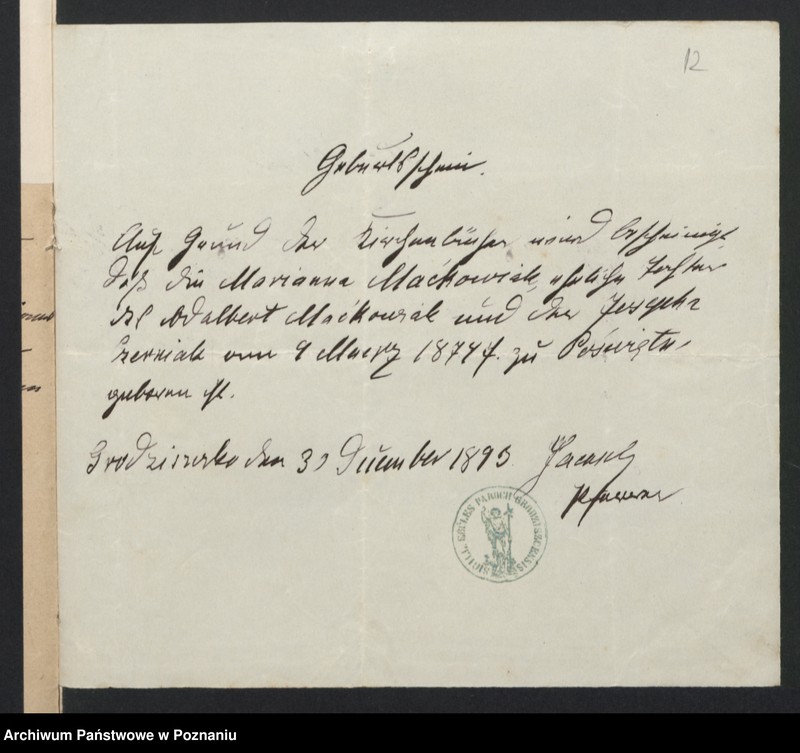 12
Geburtsschein.
Auf Grund der Kirchenbücher wird bescheinigt,
daß die Marianna Maćkowiak, eheliche Tochter
des Adalbert Maćkowiak und der Josepha
Szerniak am 9 Maerz 1874 zu Poświętne
geboren ist.
Grodziszczko den December 1893.
Pfarrer
SIGILL. ECCLES PAROCH GRODZISSCENSIS
Archiwum Państwowe w Poznaniu